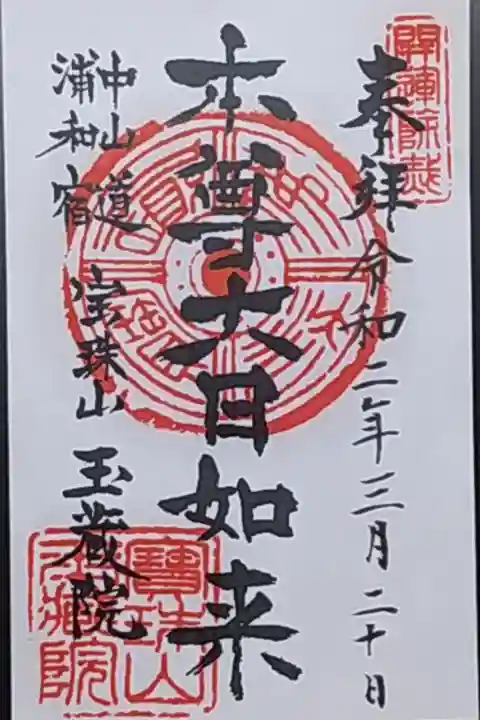 奉拝 令和二年三月二十日
本尊大日如来
中山道
浦和宿
宝珠山 玉蔵院
寶珠山
玉藏院